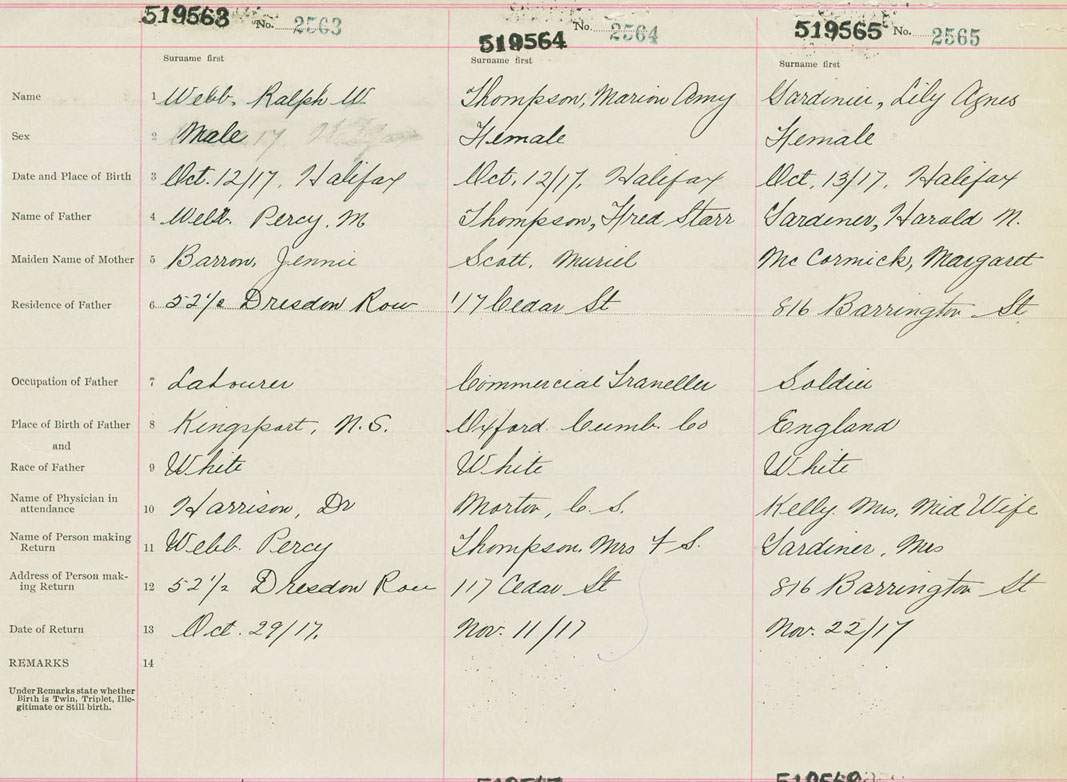 519563 No. 2563 519564 No. 2564 519565 No. 2565
Surname first Surname first Surname first
Name 1 Webb, Ralph W Thompson, Marion Amy Gardiner, Lily Agnes
Sex 2 Male Female Female
Date and Place of Birth 3 Oct. 12/17, Halifax Oct. 12/17, Halifax Oct. 13/17, Halifax
Name of Father 4 Webb. Percy. M Thompson, Fred Starr Gardiner, Harold N.
Maiden Name of Mother 5 Barron, Jennie Scott, Muriel McCormick, Margaret
Residence of Father 6 52 1/2 Dresdon Row 117 Cedar St 816 Barrington St
Occupation of Father 7 Labourer Commercial Traveller Soldier
Place of Birth of Father 8 Kingsport, N.S. Oxford Cumb. Co England
and
Race of Father 9 White White White
Name of Physician in
attendance 10 Harrison, Dr Morton, C. S. Kelly Mrs, Mid Wife
Name of Person making
Return 11 Webb Percy Thompson, Mrs F S. Gardiner, Mrs
Address of Person mak-
ing Return 12 52 1/2 Dresdon Row 117 Cedar St 816 Barrington St
Date of Return 13 Oct. 29/17. Nov. 11/17 Nov. 22/17
REMARKS 14
Under Remarks state whether
Birth is Twin, Triplet, Ille-
gitimate or Still birth.